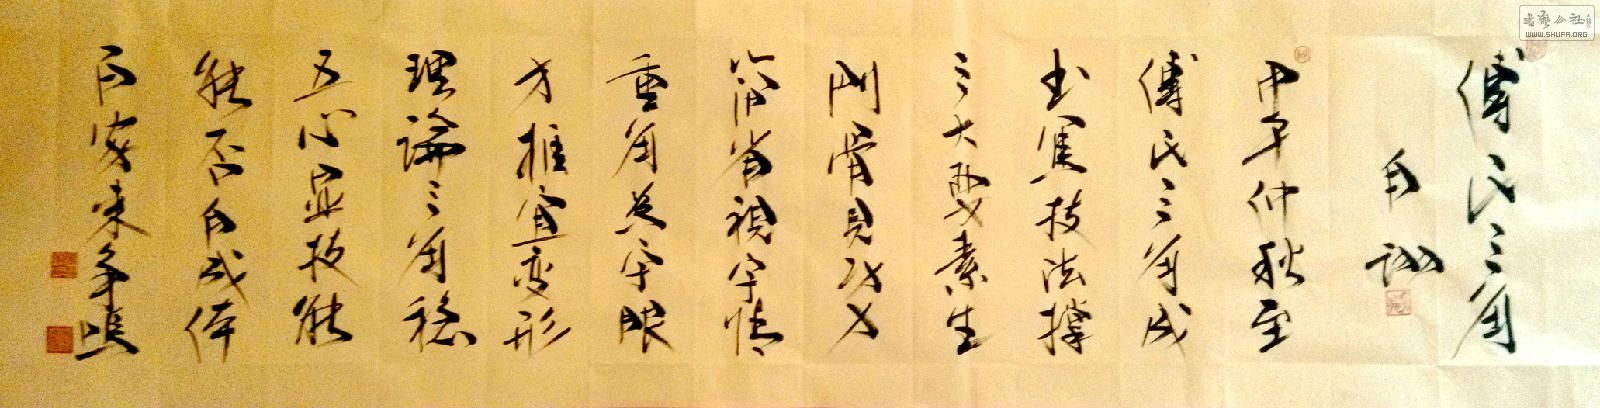 傅氏三角
自诩
甲午仲秋至
傅氏三角成
书写技法撑
三大要素生
刚骨见功力
省视字情
重角总字眼
才推宜变形
理论三角稳
五心定技能
能否自成体
百家来争鸣
书艺公社
WWW.SHUFA.ORG